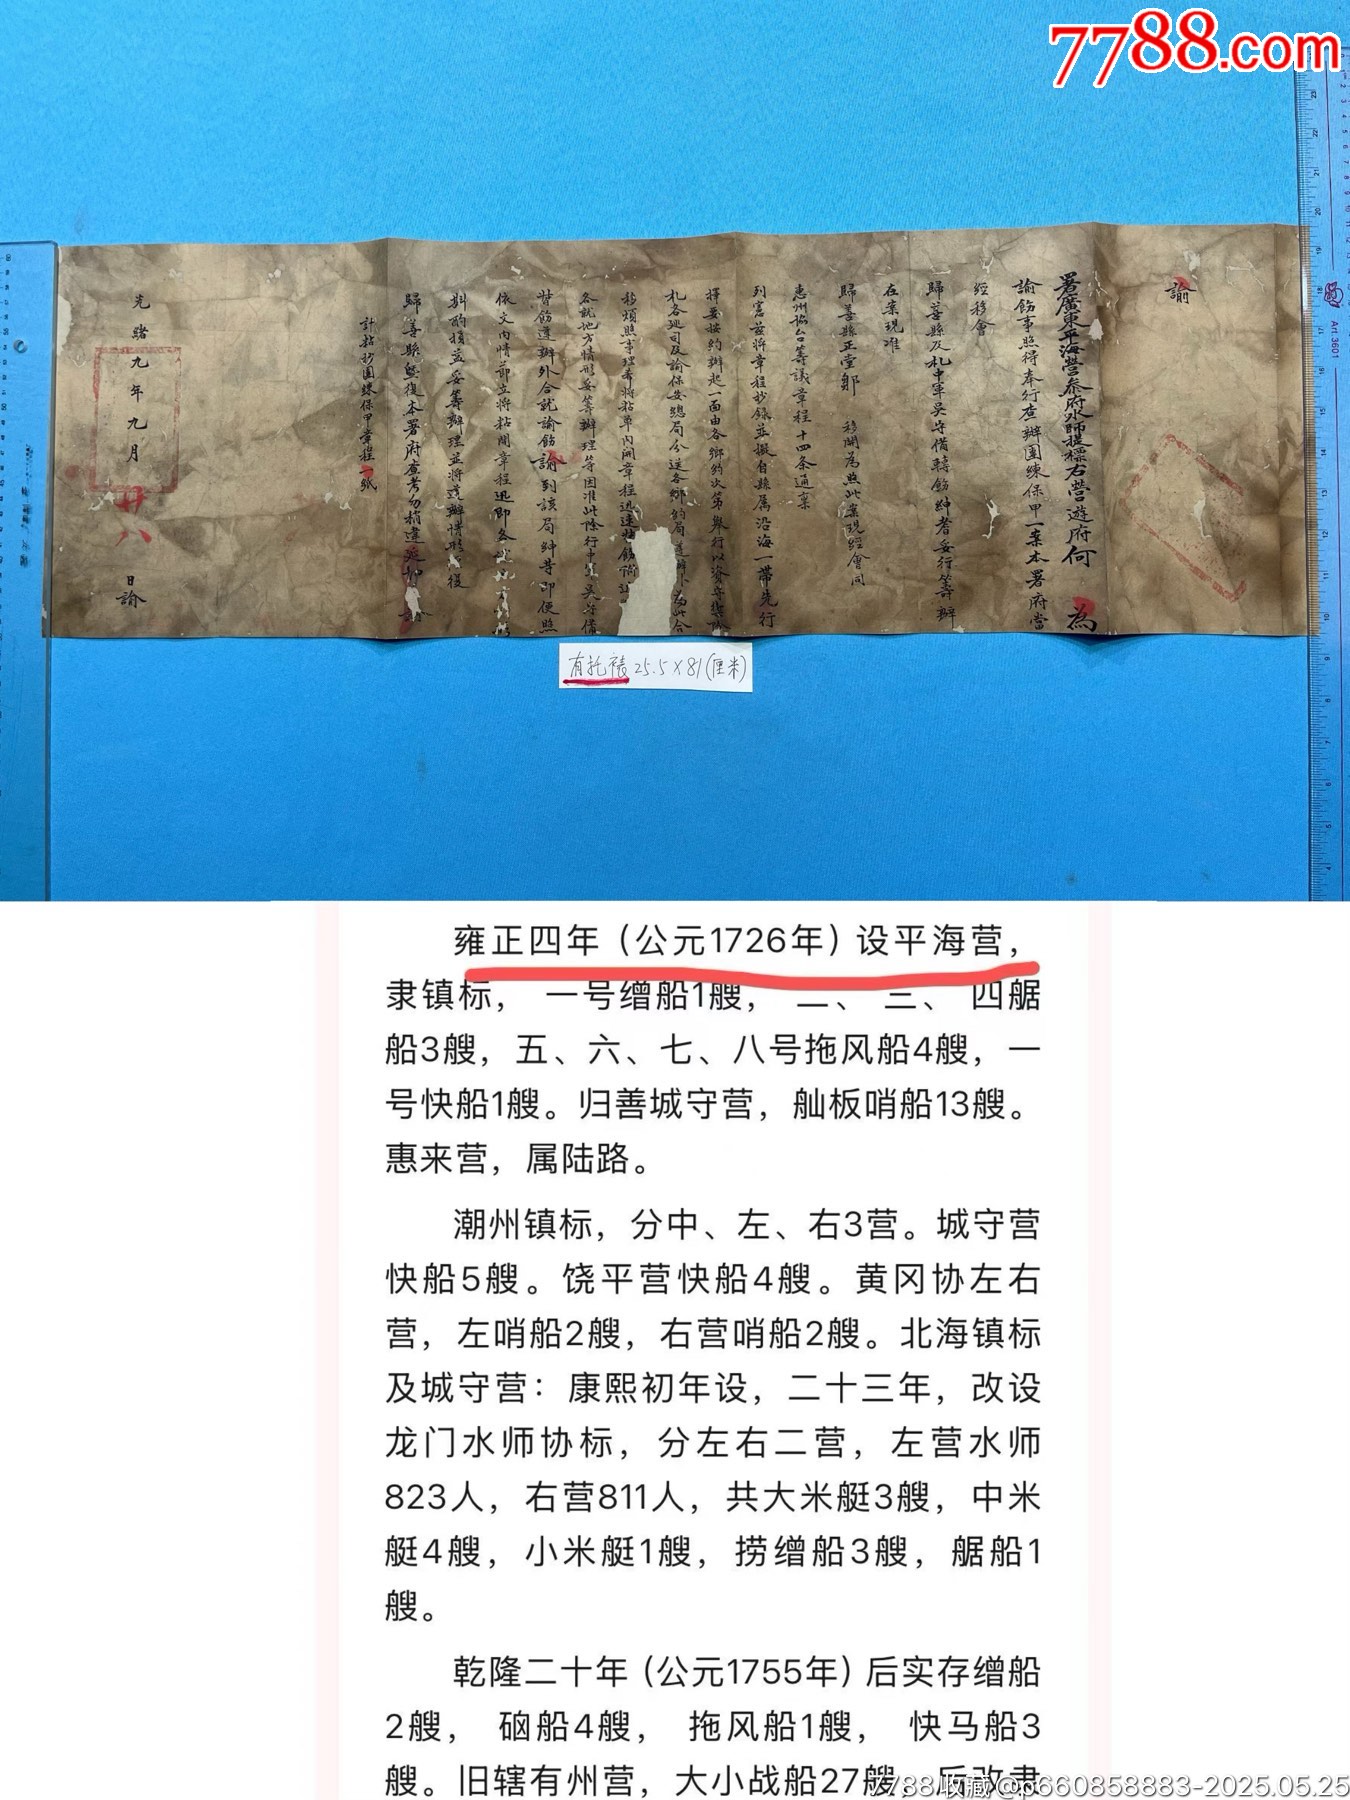 7788.com
諭
署廣東平海營參府水師提標右營遊府何 為
諭飭事照得奉行查辦團練保甲一案本署府當
經移會
歸善縣及札中軍吳守備轉飭紳耆妥行籌辦
在案現准
歸善縣正堂鄒 移開為照此案現經會同
惠州協台籌議章程十四条通稟
列憲茲將章程抄錄並擬自縣属沿海一帶先行
擇要按約辦起一面由各鄉約次第舉行以資守禦除
札各巡司及諭保安總局分送各鄉約局遵辦
移煩照事理希將粘單內開章程迅速
各就地方情形妥籌辦理等因准此除行中軍吳守備
督飭遵辦外合就諭飭諭到該局紳耆即便照
依文內情節立將粘開章程迅即
斟酌損益妥籌辦理並將遵辦情形
歸善縣暨復本署府查考勿稍違延
計粘抄團練保甲章程一紙
光緒九年九月廿六日諭
有托裱25.5×81(厘米)
Art 3601
雍正四年（公元1726年）设平海营，
隶镇标， 一号缯船1艘， 二、 三、 四艍
船3艘，五、六、七、八号拖风船4艘，一
号快船1艘。归善城守营，舢板哨船13艘。
惠来营，属陆路。
潮州镇标，分中、左、右3营。城守营
快船5艘。饶平营快船4艘。黄冈协左右
营，左哨船2艘，右营哨船2艘。北海镇标
及城守营：康熙初年设，二十三年，改设
龙门水师协标，分左右二营，左营水师
823人，右营811人，共大米艇3艘，中米
艇4艘，小米艇1艘，捞缯船3艘，艍船1
艘。
乾隆二十年（公元1755年）后实存缯船
2艘， 硇船4艘， 拖风船1艘， 快马船3
艘。旧辖有州营，大小战船27艘，后改隶
7788收藏@p660858883-2025.05.25